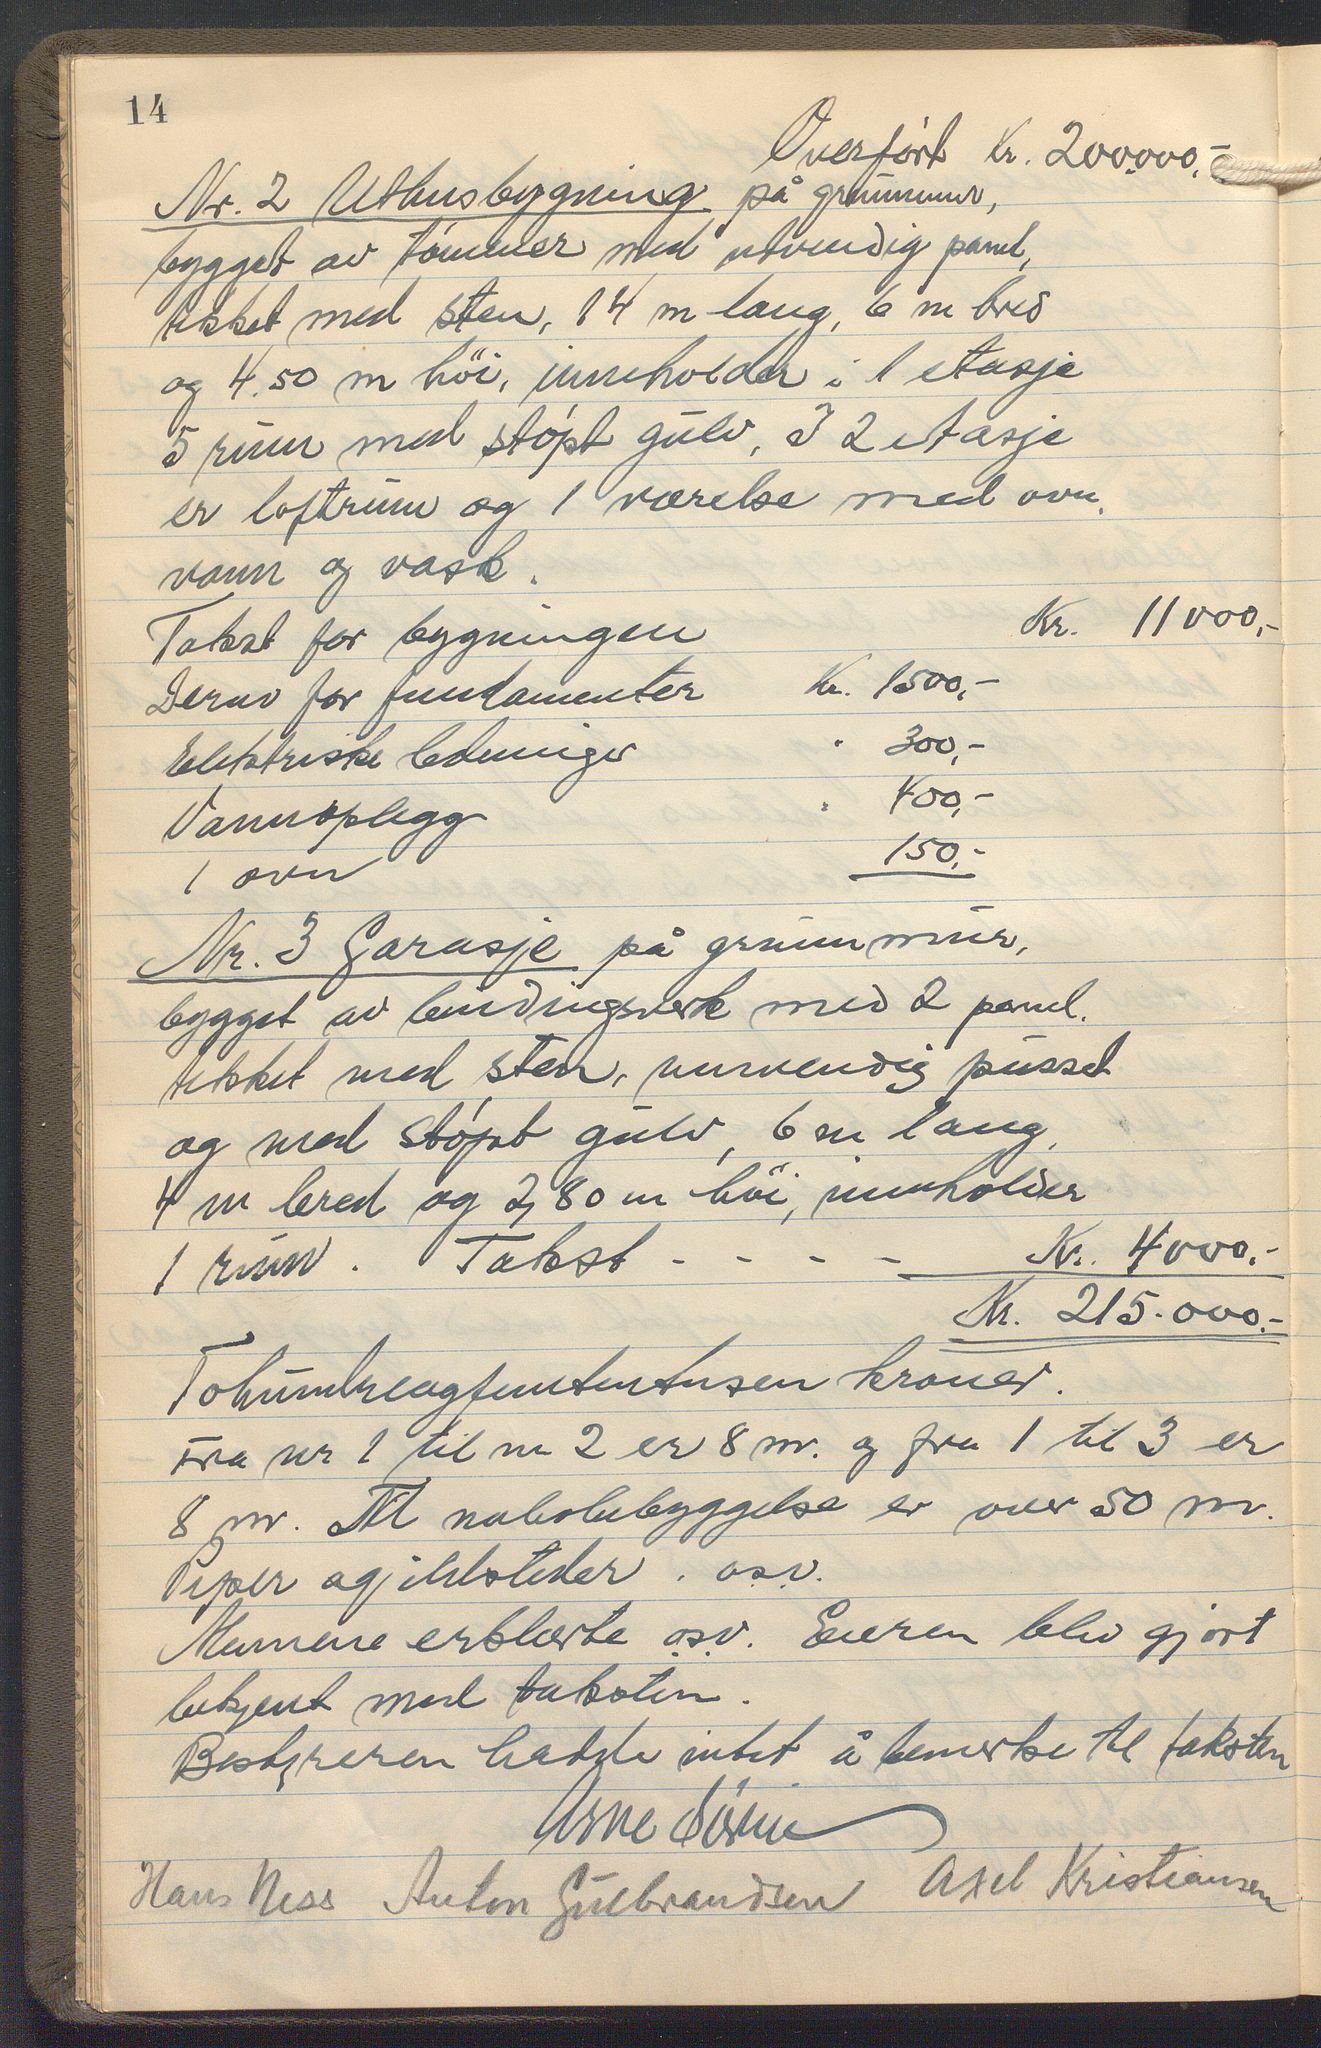 14
Overført Kr. 200.000,-
Nr. 2 Uthusbygning på grunnmur,
bygget av tømmer med utvendig panel,
tekket med sten, 14 m lang, 6 m bred
og 4.50 m höi, inneholder i 1 etasje
5 rum med støpt gulv, I 2 etasje
er loftrum og 1 værelse med ovn,
vann og vask.
Takst for bygningen Kr. 11000,-
Derav for fundamenter Kr. 1500,-
Elektriske ledninger " 300,-
Vannoplegg " 400,-
1 ovn 150,-
Nr. 3 Garasje på grunnmur,
bygget av bindingsverk med 2 panel.
tekket med sten, innvendig pusset
og med støpt gulv, 6 m lang,
4 m bred og 2,80 m höi, inneholder
1 rum. Takst - - - - Kr. 4000.-
Kr. 215.000.-
Tohundreogfemtentusen kroner.
Fra nr 1 til nr 2 er 8 m. og fra 1 til 3 er
8 m. Til nabobebyggelse er over 50 m.
Piper og ildsteder. osv.
Mennene erklærte osv. Eieren blev gjort
bekjent med taksten.
Bestyreren hadde intet å bemerke til taksten
Arne
Hans Ness Anton Gulbrandsen Axel Kristiansen